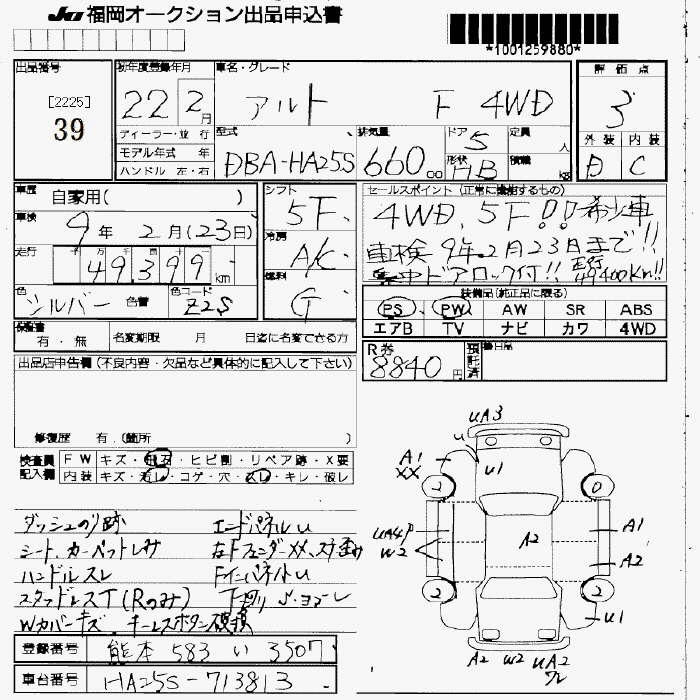 JU 福岡オークション出品申込書
*1001259880*
出品番号
[2225]
39
初年度登録年月
22 2月
車名・グレード
アルト F 4WD
評価点
3
外装 内装
D C
ディーラー・並行
モデル年式 年
ハンドル 左・右
型式
DBA-HA25S
排気量
660 cc
ドア 5
形状 HB
定員 人
積載 kg
車歴 自家用( )
車検 9年 2月(23日)
走行 49,399 km
色 シルバー 色替
色コード Z2S
シフト 5F
冷房 A/C
燃料 G
セールスポイント(正常に機能するもの)
4WD、5F!!希少車
車検9年.2月23日まで!!
集中ドアロック付!! 走行49400km!!
装備品(純正品に限る)
PS PW AW SR ABS
エアB TV ナビ カワ 4WD
保証書 有・無
名変期限 月 日迄に名変できる方
R券 8840円
預託済
後日品
出品店申告欄(不良内容・欠品など具体的に記入して下さい)
修復歴 有(箇所 )
検査員記入欄
FW キズ・飛石・ヒビ割・リペア跡・X要
内装 キズ・汚レ・コゲ・穴・スレ・キレ・破レ
ダッシュのリ跡
シート、カーペットしみ
ハンドルスレ
スタッドレスT(Rのみ)
Wカバーキズ キーレスボタン破損
エンドパネルU
右Fフェンダー
FインパネルU
下廻りS・ヨゴレ
登録番号 熊本 583 い 3507
車台番号 HA25S-713813
UA3
A1
XX
U
U1
2
0
UA4P
W2
A2
A1
A2
2
2
U1
A2 W2 UA2
ワレ